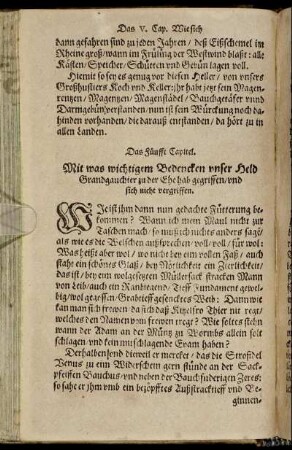 Das V. Cap. Wie sich
dann gefahren sind zu jeden Jahren / deß Eißschemel im
Rheine groß / wann im Früling der Westwind bläßt: alle
Kästen / Speicher / Schütten vnd Gerün lagen voll.
Hiemit so sey es genug vor diesen Heller / von vnsers
Großhustiers Koch vnd Keller: ihr habt jetz sein Magen-
renzen / Magenzen / Magenstädel / Bauchgeräter vnnd
Darmgehün verstanden nun ist sein Würckung noch da-
hinden vorhanden / die darauß entstanden / da hört zu in
allen Landen.
Das Fünfft Capitel.
Mit was wichtigem Bedencken vnser Held
Grandgauchier zu der Ehe hab gegriffen / vnd
sich nicht vergriffen.
WIe ist ihm dann nun gedachte Fütterung be-
kommen? Wann ich mein Maul nicht zur
Taschen mach / so muß ich nichts anders sagē /
als wie es die Welschen außsprechen / voll / für wol:
Was heißt aber wol / wo nicht bey ein vollen Faß / auch
stahe ein schönes Glaß / bey Nörlichkeit ein Zierlichkeit /
das ist / bey eim wolgesetzten Müllersack starcken Mann
von Leib / auch ein
big / wol
kan man sich frewen da sich daß Kützelfro Thier nit regt /
welches den Namen vom frewen tregt? Wie solte es stehn
wann der Adam an der Müntz zu Wormbs allein solt
schlagen / vnd kein mitschlagende Evam haben?
Derhalben / vnd dieweil er mercket / das die Strosidel
Venus zu eim Widerschein gern stünde an der Sack-
pfeiffen Bauchus / vnd neben der Bauch fuderigen Zeres:
so sahe er ihm vmb ein bezöpfftes Außstracknuß vnd Be-
ginnen-